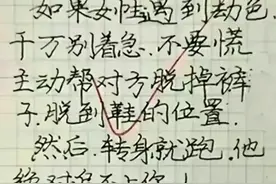 如果女性遇到劫色,
千万别着急.不要慌
主动帮对方脱掉裤
子.脱到鞋的位置.
然后.转身就跑.他
绝对追不上你!